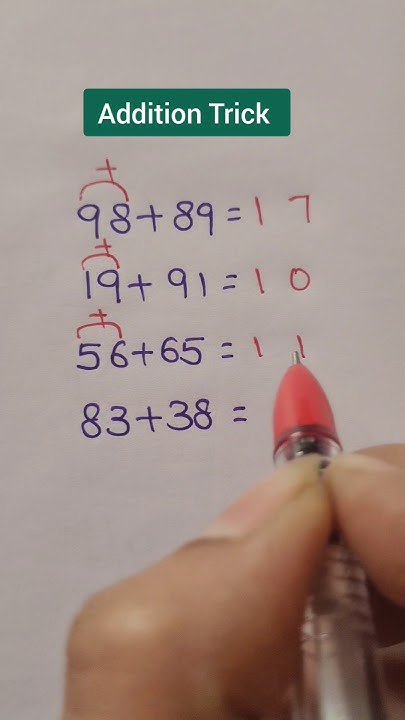 Addition Trick
+
98+89=1 7
+
19+91=1 0
+
56+65=1 1
83+38=